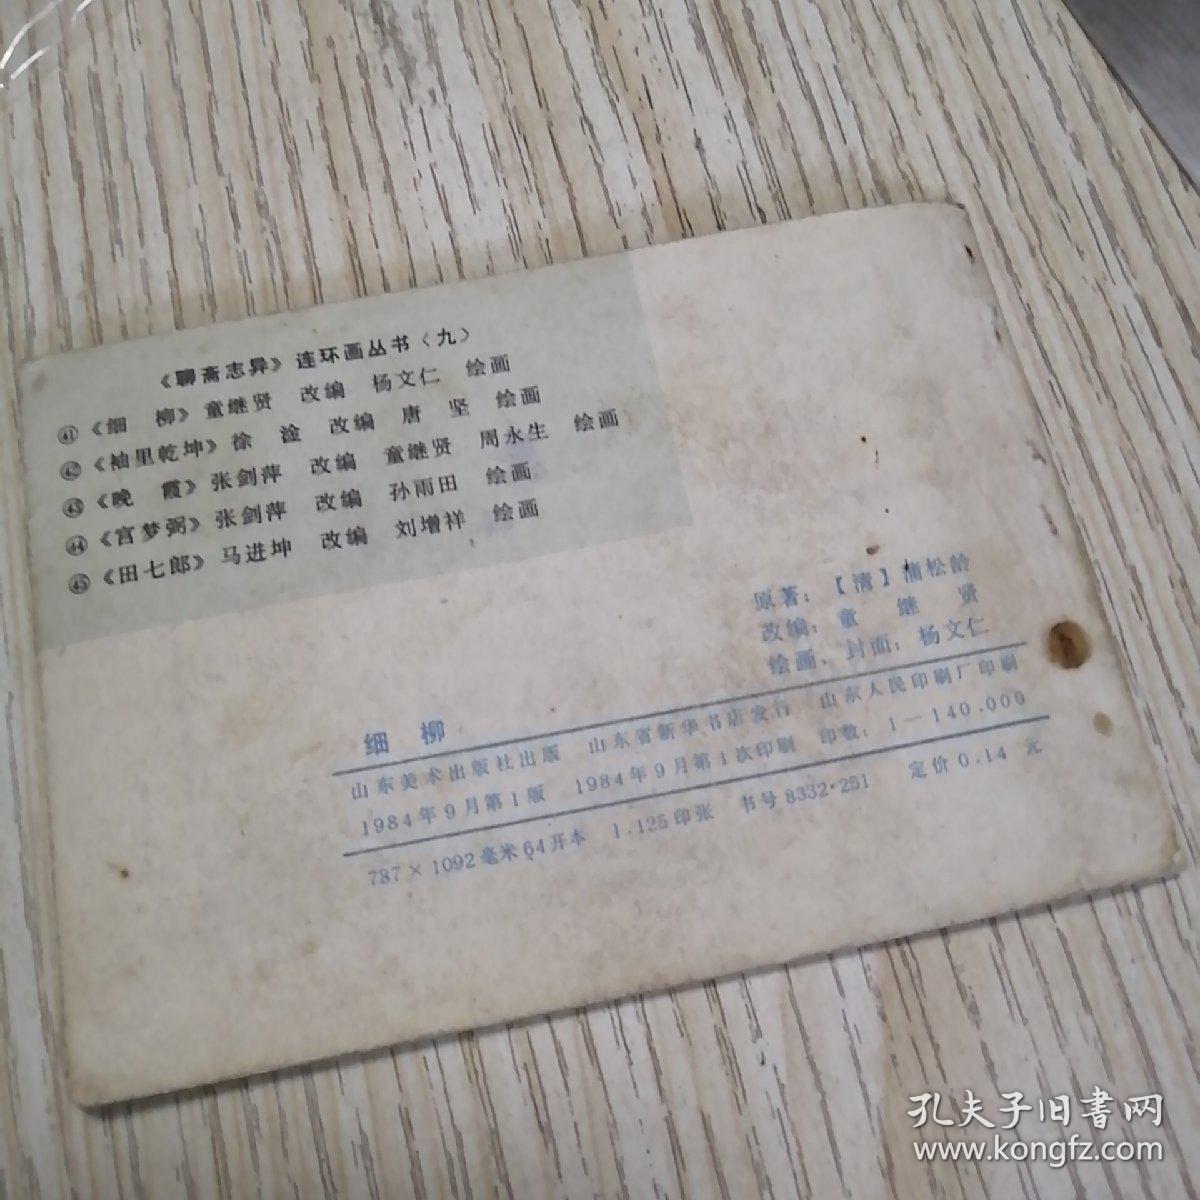 《聊斋志异》连环画丛书〈九〉
㊶《细 柳》童继贤 改编 杨文仁 绘画
㊷《袖里乾坤》徐 淦 改编 唐 坚 绘画
㊸《晚 霞》张剑萍 改编 童继贤 周永生 绘画
㊹《宫梦弼》张剑萍 改编 孙雨田 绘画
㊺《田七郎》马进坤 改编 刘增祥 绘画
原著：【清】蒲松龄
改编：童 继 贤
绘画、封面：杨文仁
细 柳
山东美术出版社出版 山东省新华书店发行 山东人民印刷厂印刷
1984年9月第1版 1984年9月第1次印刷 印数：1—140,000
787×1092毫米64开本 1.125印张 书号8332·251 定价0.14 元
孔夫子旧書网
www.kongfz.com